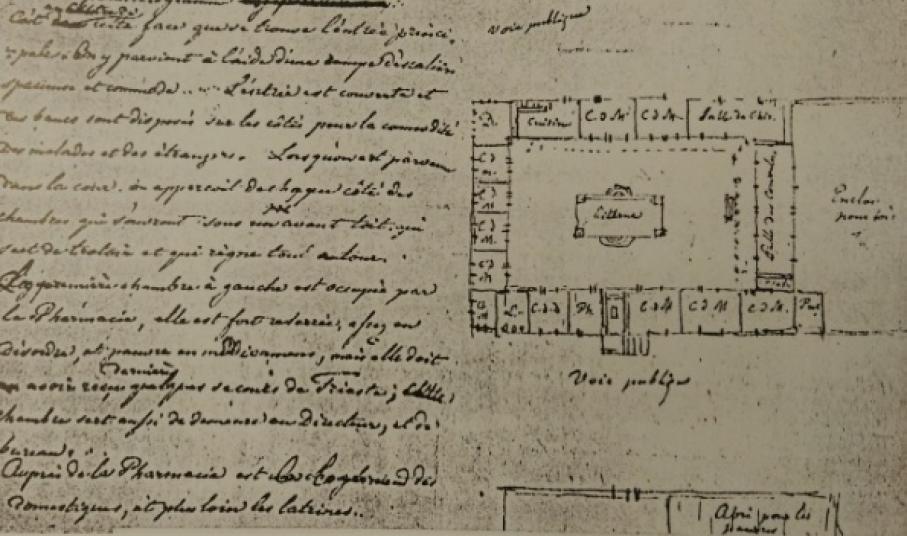 côté cette face que se trouve l'entrée princi-
pale. On y parvient à l'aide d'une rampe d'escalier
spacieuse et commode... L'entrée est couverte et
des bancs sont disposés sur les côtés pour la commodité
des malades et des étrangers. Lorsqu'on est parvenu
dans la cour on apperçoit de chaque côté des
chambres qui s'ouvrent sous un avant toit qui
sert de trotoir et qui règne tout autour.
La première chambre à gauche est occupée par
la Pharmacie, elle est fort resserrée, assez en
désordre, et pauvre en médicamens, mais elle doit
dernièrement
avoir reçu quelques secours de Trieste; cette
chambre sert aussi de demeure au Directeur, et de
bureau.
Auprès de la Pharmacie est le logement des
domestiques, et plus loin les latrines..
voie publique
Cuisine
C.d.M.
C.d.M.
Salle de Chir.
C.d.M.
C.d.M.
Citerne
Salle des Consult.
Enclos
pour bois
L.
C.d.D.
Ph.
C.d.M
C.d.M
C.d.M.
Voie publique
Abri pour les